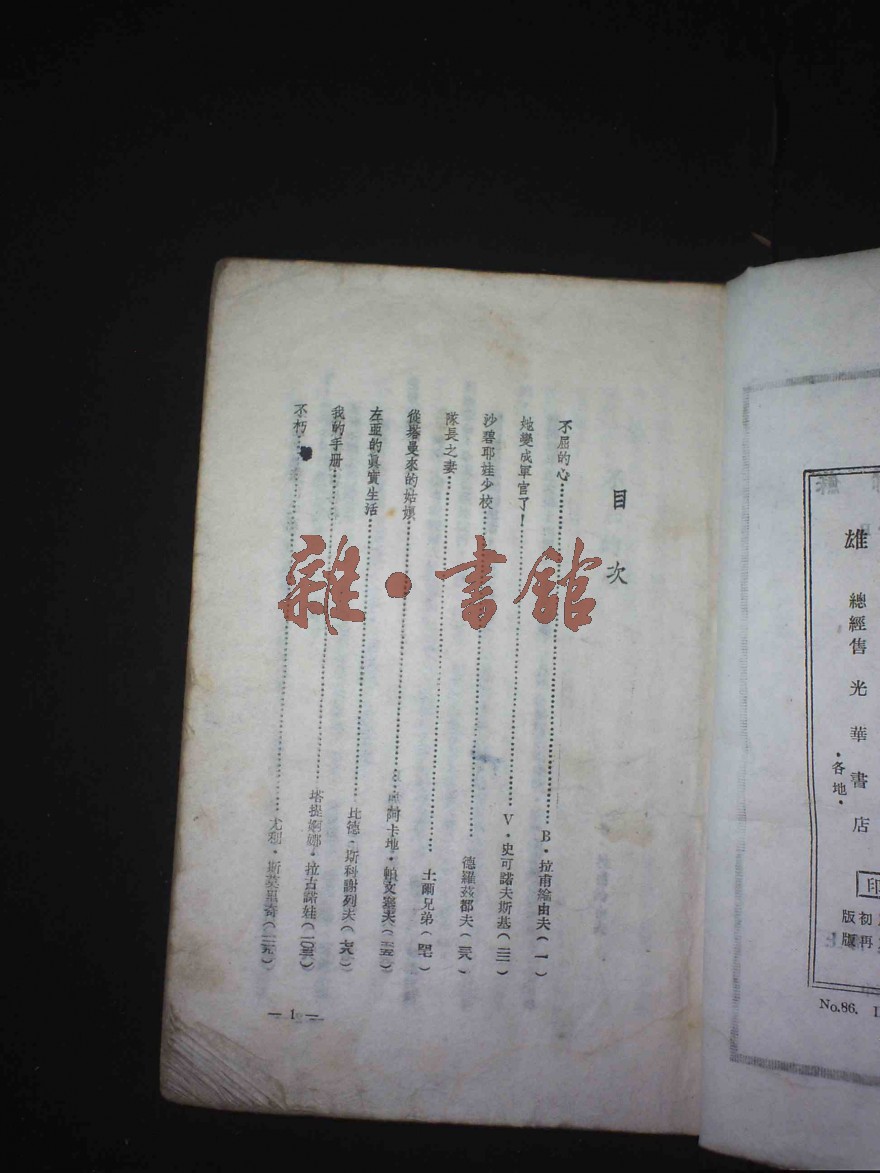 目次
不屈的心………B·拉甫綸由夫(一)
她變成軍官了！………V·史可諾夫斯基(二二)
沙碧耶娃少校………德羅茲都夫(三八)
隊長之妻………土爾兄弟(四七)
從塔曼來的姑娘………阿卡地·
左亞的真實生活………比德·斯科謝列夫(七八)
我的手册………塔提婀娜·拉古諾娃(一〇三)
不朽………尤利·斯
— 1 —
雜·書館
雄
總經售 光華書店
·各地·
印
初版
再版
No.86.